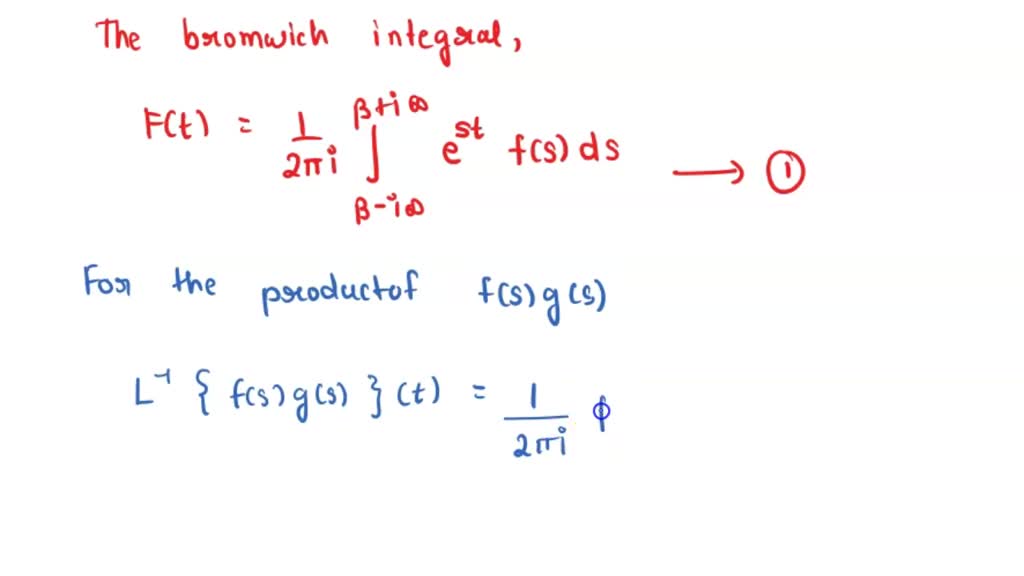 The bromwich integral,
F(t) = 1/2πi ∫_{β-i∞}^{β+i∞} e^{st} f(s) ds → ①
For the productof f(s)g(s)
L⁻¹ { f(s)g(s) } (t) = 1/2πi ϕ